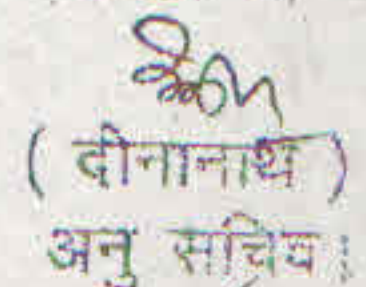 ( दीनानाथ )
अनु सचिव